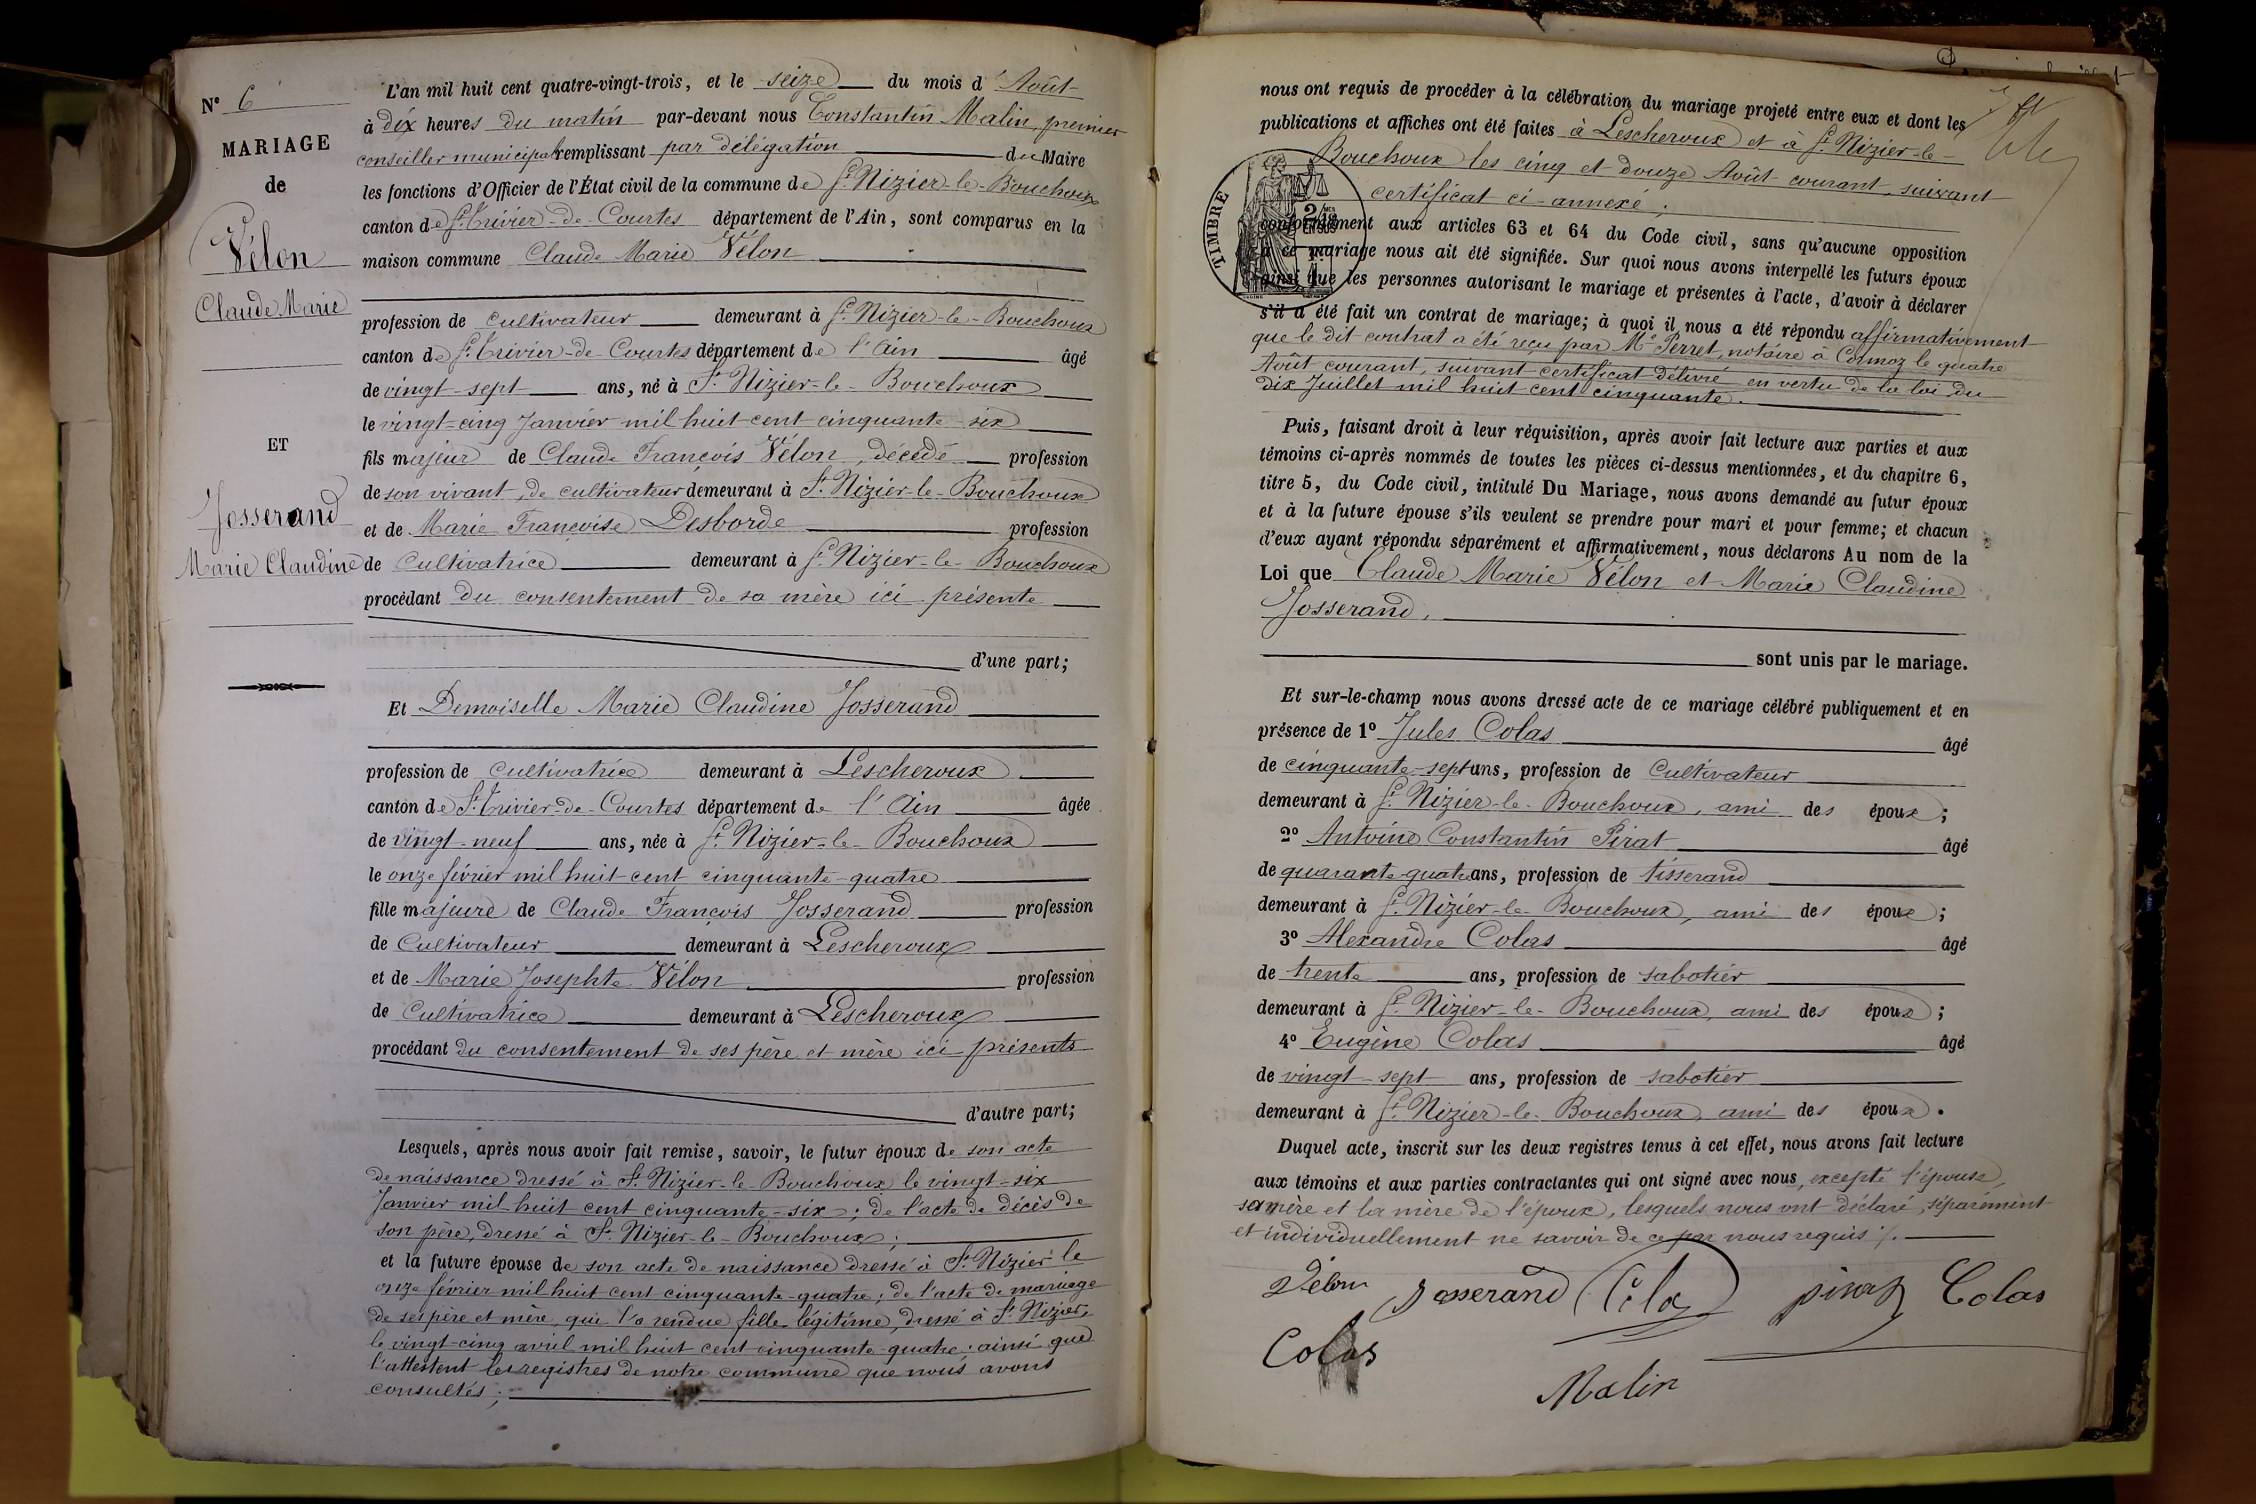 N° 6
MARIAGE
de
Vélon
Claude Marie
ET
Josserand
Marie Claudine
L'an mil huit cent quatre-vingt-trois, et le seize du mois d'Août
à dix heures du matin par-devant nous Constantin Malin, premier
conseiller municipal remplissant par délégation du Maire
les fonctions d'Officier de l'État civil de la commune de St. Nizier-le-Bouchoux
canton de St. Trivier-de-Courtes département de l'Ain, sont comparus en la
maison commune Claude Marie Vélon
profession de cultivateur demeurant à St. Nizier-le-Bouchoux
canton de St. Trivier-de-Courtes département de l'Ain âgé
de vingt-sept ans, né à St. Nizier-le-Bouchoux
le vingt-cinq Janvier mil huit cent cinquante six
fils majeur de Claude François Vélon, décédé profession
de son vivant, de cultivateur demeurant à St. Nizier-le-Bouchoux
et de Marie Françoise Desborde profession
de Cultivatrice demeurant à St. Nizier-le-Bouchoux
procédant du consentement de sa mère ici présente
d'une part;
Et Demoiselle Marie Claudine Josserand
profession de Cultivatrice demeurant à Lescheroux
canton de St. Trivier-de-Courtes département de l'Ain âgée
de vingt-neuf ans, née à St. Nizier-le-Bouchoux
le onze février mil huit cent cinquante-quatre
fille majeure de Claude François Josserand profession
de Cultivateur demeurant à Lescheroux
et de Marie Josephte Vélon profession
de Cultivatrice demeurant à Lescheroux
procédant du consentement de ses père et mère ici présents
d'autre part;
Lesquels, après nous avoir fait remise, savoir, le futur époux de son acte
de naissance dressé à St. Nizier-le-Bouchoux le vingt-six
Janvier mil huit cent cinquante-six; de l'acte de décès de
son père, dressé à St. Nizier-le-Bouchoux;
et la future épouse de son acte de naissance dressé à St. Nizier le
onze février mil huit cent cinquante-quatre; de l'acte de mariage
de ses père et mère, qui l'a rendue fille légitime, dressé à St. Nizier
le vingt-cinq avril mil huit cent cinquante-quatre; ainsi que
l'attestent les registres de notre commune que nous avons
consultés;
nous ont requis de procéder à la célébration du mariage projeté entre eux et dont les
publications et affiches ont été faites à Lescheroux et à St. Nizier-le-
Bouchoux les cinq et douze Août courant, suivant
certificat ci-annexé;
TIMBRE
conformément aux articles 63 et 64 du Code civil, sans qu'aucune opposition
à ce mariage nous ait été signifiée. Sur quoi nous avons interpellé les futurs époux
ainsi que les personnes autorisant le mariage et présentes à l'acte, d'avoir à déclarer
s'il a été fait un contrat de mariage; à quoi il nous a été répondu affirmativement
que le dit contrat a été reçu par Me Perret, notaire à Cormoz le quatre
Août courant, suivant certificat délivré en vertu de la loi du
dix Juillet mil huit cent cinquante.
Puis, faisant droit à leur réquisition, après avoir fait lecture aux parties et aux
témoins ci-après nommés de toutes les pièces ci-dessus mentionnées, et du chapitre 6,
titre 5, du Code civil, intitulé Du Mariage, nous avons demandé au futur époux
et à la future épouse s'ils veulent se prendre pour mari et pour femme; et chacun
d'eux ayant répondu séparément et affirmativement, nous déclarons Au nom de la
Loi que Claude Marie Vélon et Marie Claudine
Josserand,
sont unis par le mariage.
Et sur-le-champ nous avons dressé acte de ce mariage célébré publiquement et en
présence de 1° Jules Colas âgé
de cinquante-sept ans, profession de Cultivateur
demeurant à St. Nizier-le-Bouchoux, ami des époux;
2° Antoine Constantin Pirat âgé
de quarante-quatre ans, profession de tisserand
demeurant à St. Nizier-le-Bouchoux, ami des époux;
3° Alexandre Colas âgé
de trente ans, profession de sabotier
demeurant à St. Nizier-le-Bouchoux, ami des époux;
4° Eugène Colas âgé
de vingt-sept ans, profession de sabotier
demeurant à St. Nizier-le-Bouchoux, ami des époux.
Duquel acte, inscrit sur les deux registres tenus à cet effet, nous avons fait lecture
aux témoins et aux parties contractantes qui ont signé avec nous, excepté l'épouse,
sa mère et la mère de l'époux, lesquels nous ont déclaré, séparément
et individuellement ne savoir de ce par nous requis ./.
Vélon Josserand Colas pirat Colas
Colas
Malin